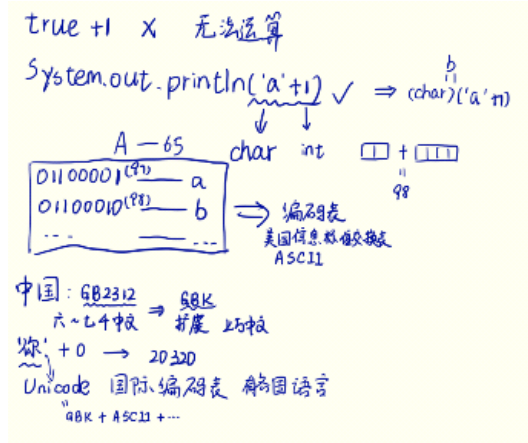 true +1 × 无法运算
System.out.println('a'+1) ✓ ⇒ (char)('a'+1)
b
char int □□ + □□□□
98
A — 65
01100001(97) — a
01100010(98) — b
.... — ...
⇒ 编码表
美国信息数值交换表
ASCII
中国：GB2312 ⇒ GBK
六~七千中文 扩展 上万中文
'你' + 0 → 20320
Unicode 国际编码表 各国语言
GBK + ASCII + ...